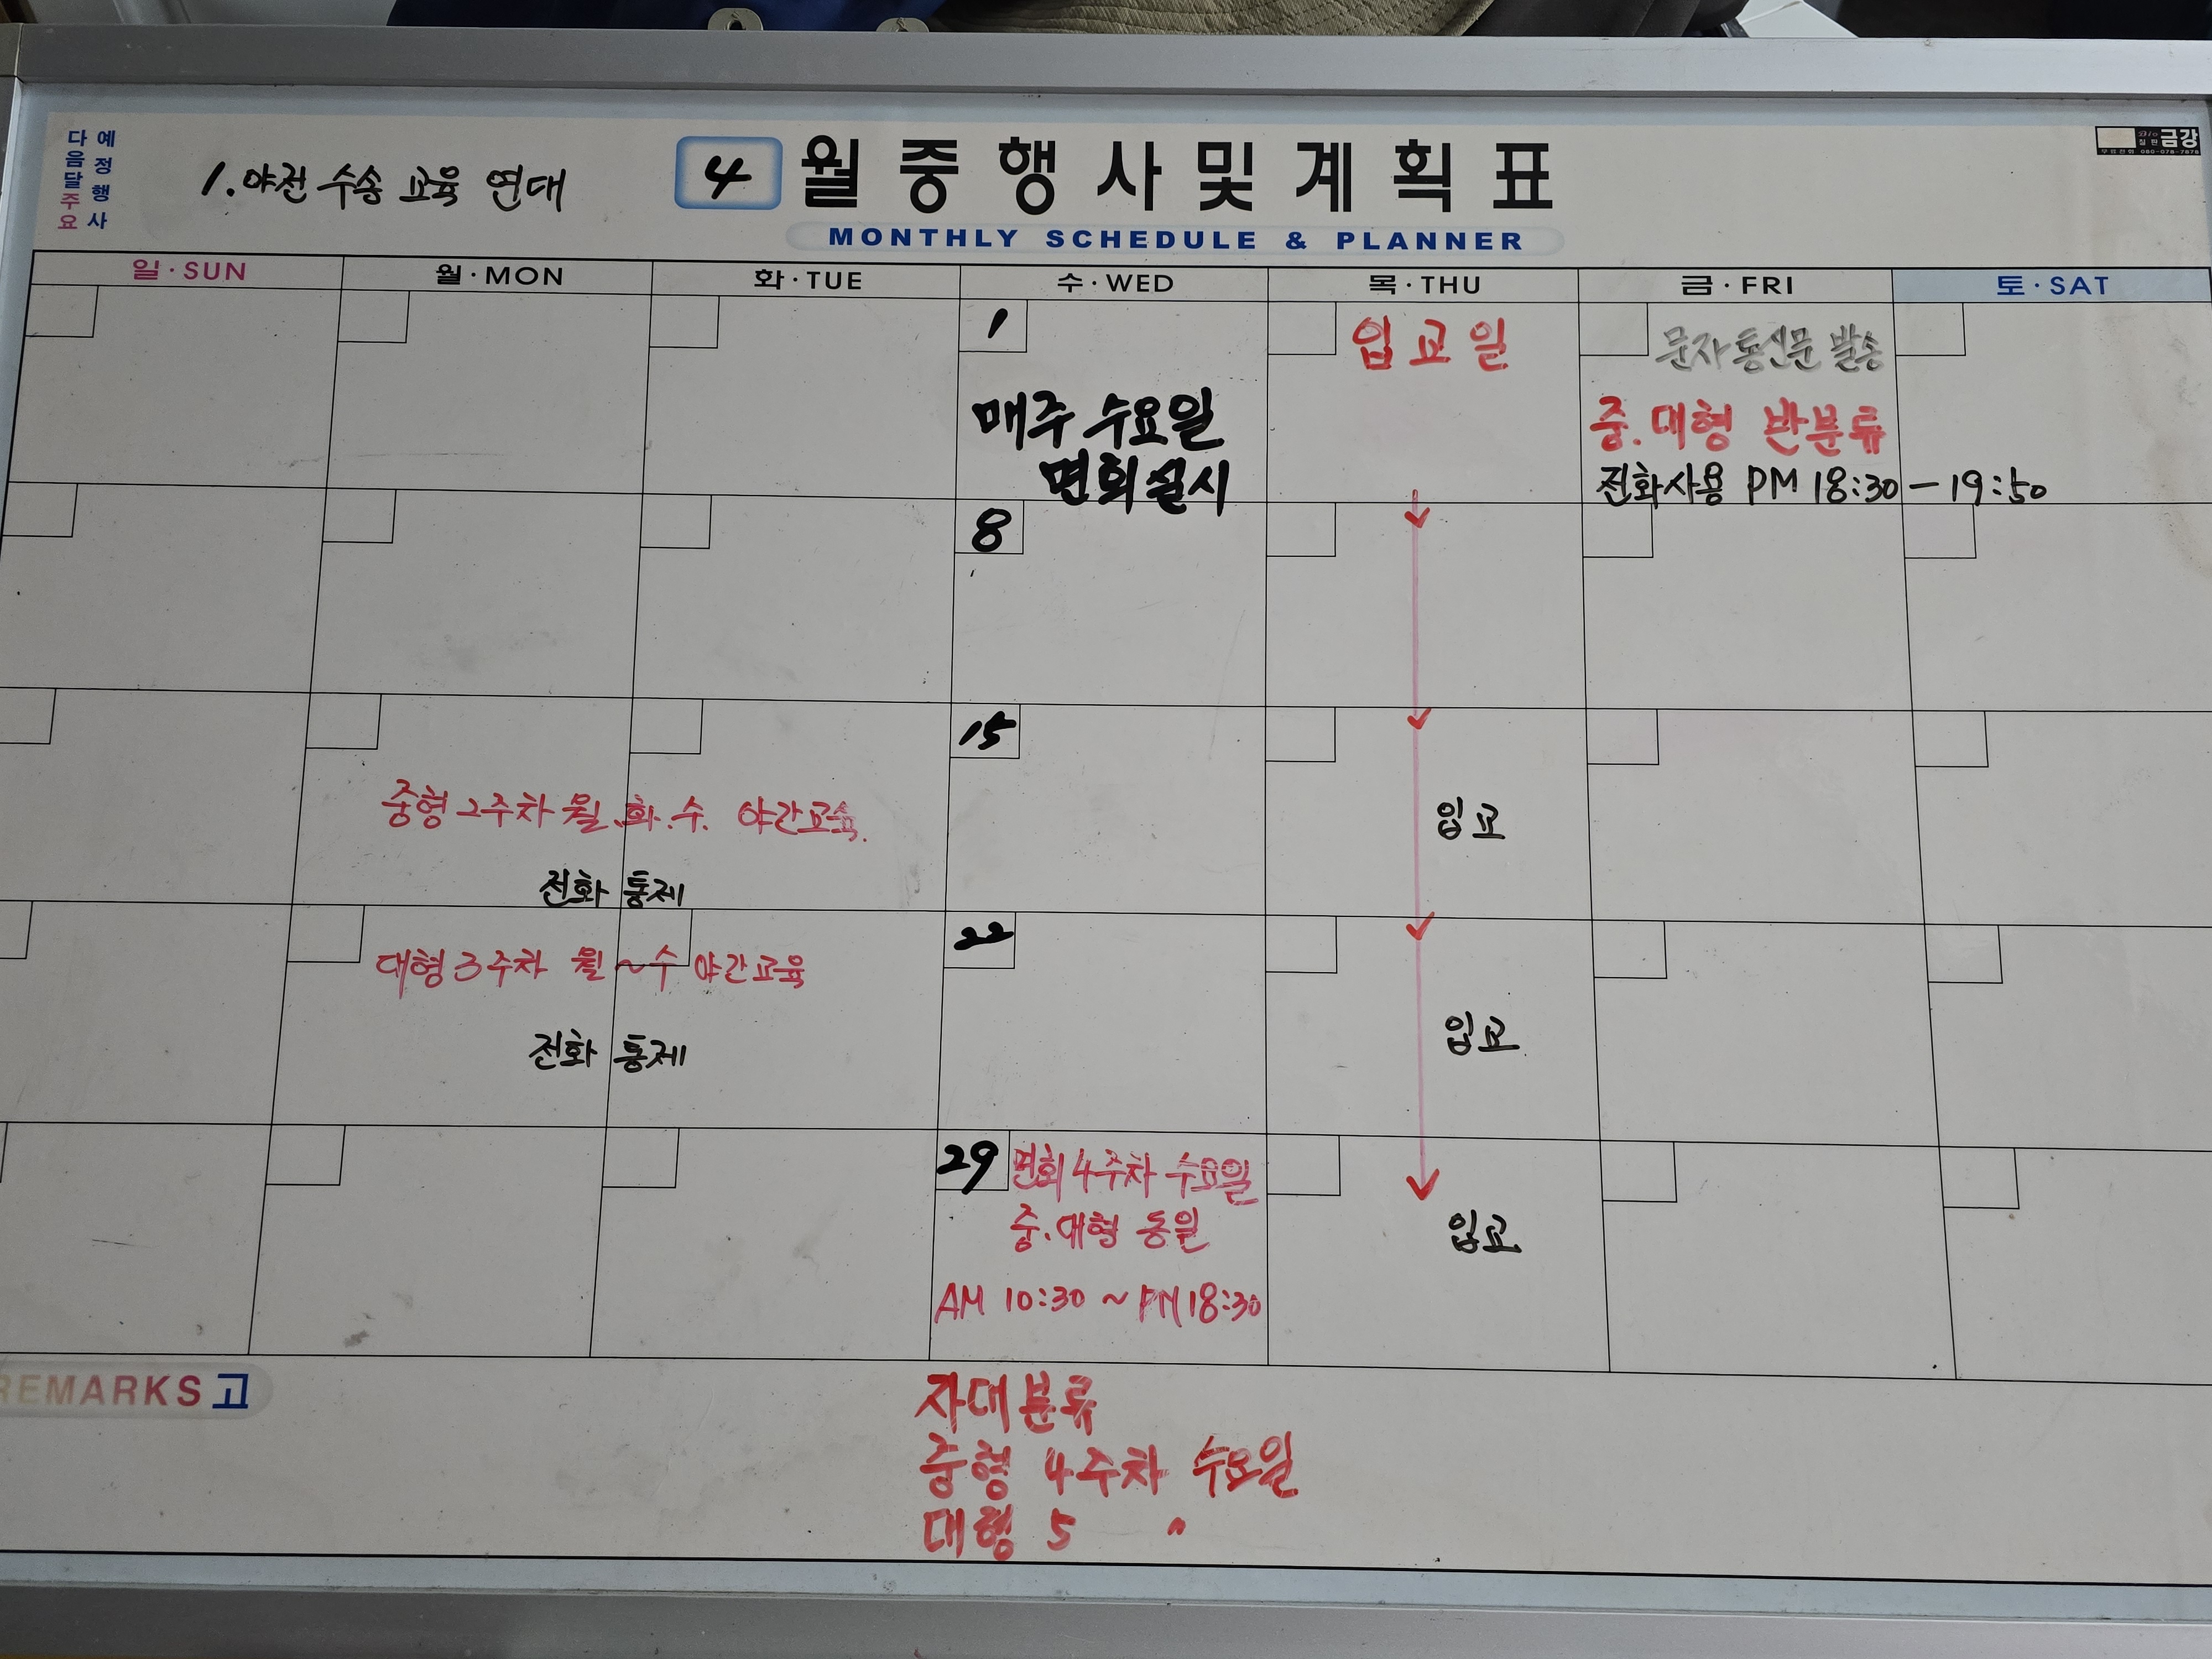 다음달주요
예정행사
1. 야전 수송 교육 연대
4 월중행사및계획표
MONTHLY SCHEDULE & PLANNER
금강
일·SUN 월·MON 화·TUE 수·WED 목·THU 금·FRI 토·SAT
1
매주 수요일
면회실시
입교일
문자통신문 발송
중.대형 반분류
전화사용 PM 18:30 - 19:50
8
15
중형 2주차 월.화.수. 야간교육.
전화 통제
입교
22
대형 3주차 월~수 야간교육
전화 통제
입교
29
면회 4주차 수요일
중.대형 동일
AM 10:30 ~ PM 18:30
입교
REMARKS 고
자대분류
중형 4주차 수요일
대형 5 〃